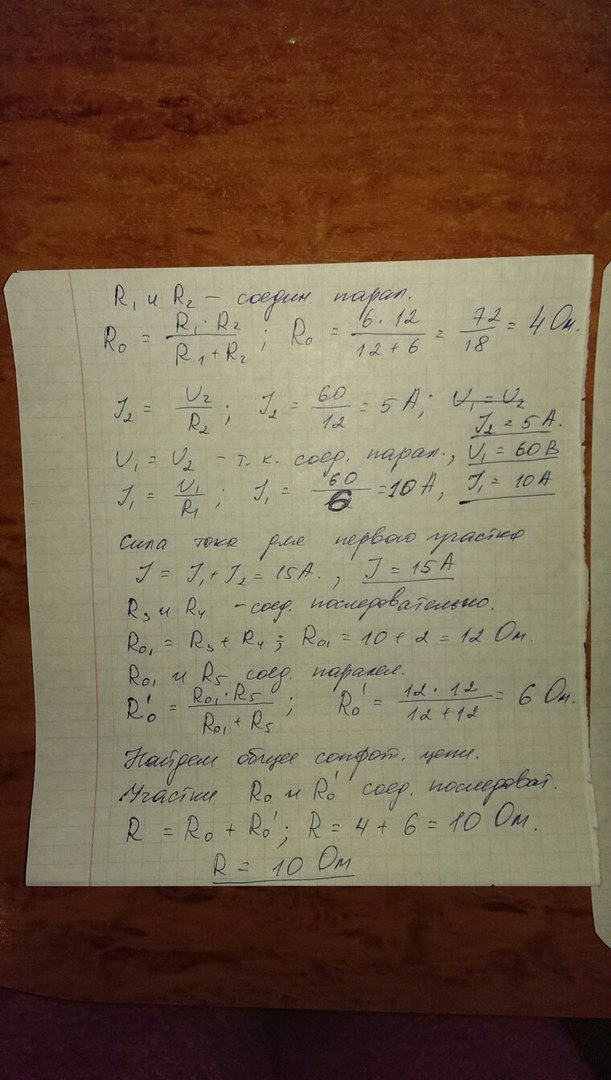 R₁ и R₂ – соедин. парал.
R₀ = R₁·R₂ / R₁+R₂ ; R₀ = 6·12 / 12+6 = 72/18 = 4 Ом.
J₂ = U₂/R₂ ; J₂ = 60/12 = 5 А; U₁=U₂
J₂ = 5А.
U₁ = U₂ – т.к. соед. парал., U₁ = 60В
J₁ = U₁/R₁ ; J₁ = 60/6 = 10А, J₁ = 10А
Сила тока для первого участка
J = J₁+J₂ = 15А. , J = 15А
R₃ и R₄ – соед. последовательно.
R₀₁ = R₃ + R₄ ; R₀₁ = 10 + 2 = 12 Ом.
R₀₁ и R₅ соед. паралел.
R₀' = R₀₁·R₅ / R₀₁+R₅ ; R₀' = 12·12 / 12+12 = 6 Ом.
Найдем общее сопрот. цепи.
Участки R₀ и R₀' соед. последоват.
R = R₀ + R₀' ; R = 4 + 6 = 10 Ом.
R = 10 Ом